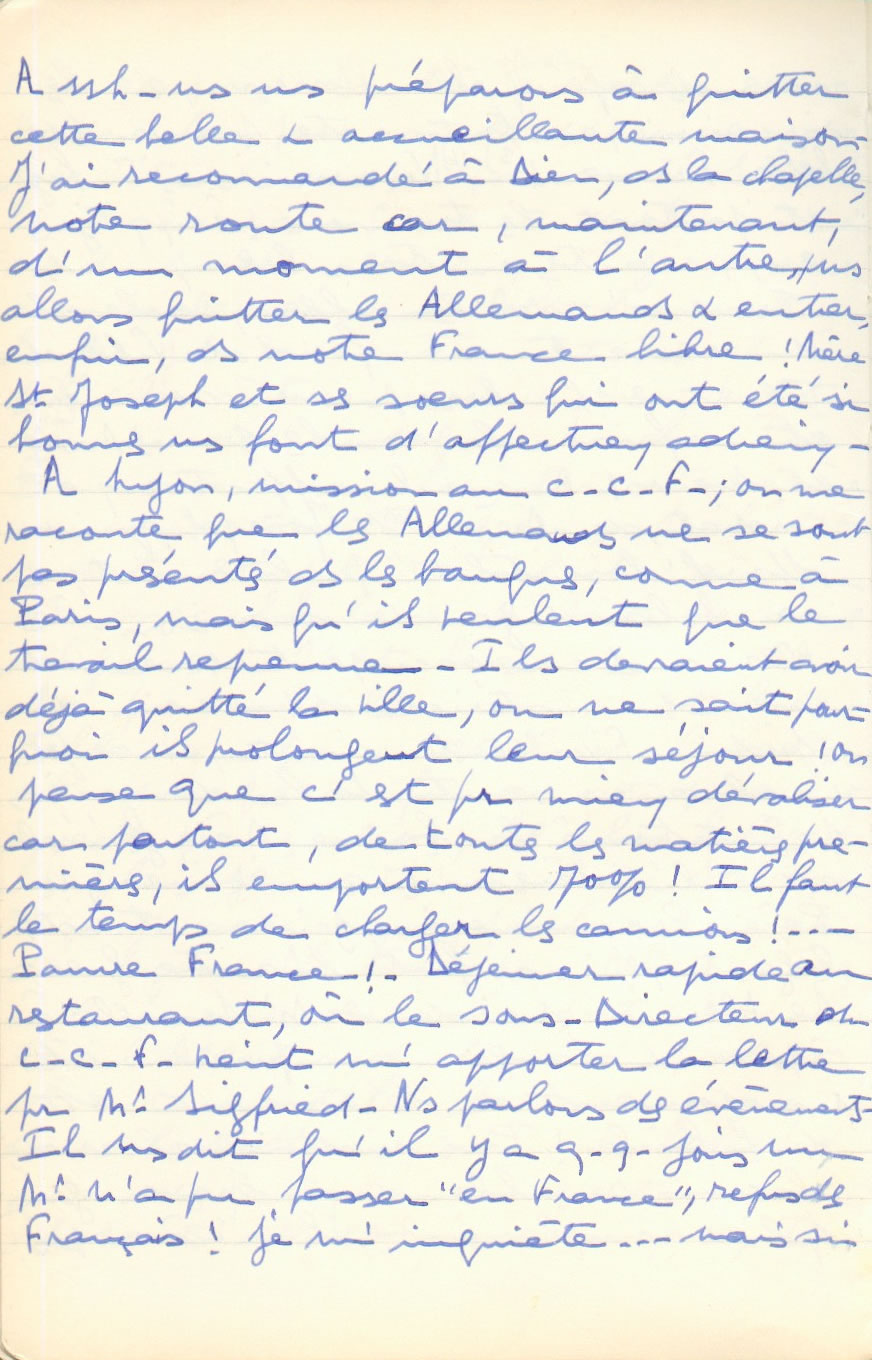 A 11h - ns ns préparons à quitter
cette belle & accueillante maison
J'ai recommandé à Dieu, ds la chapelle,
notre route car, maintenant,
d'un moment à l'autre, ns
allons quitter ls Allemands & entrer,
enfin, ds notre France libre ! Mère
St Joseph et ss soeurs qui ont été si
bonnes ns font d'affectueux adieux -
A Lyon, mission au C-C-F- ; on me
raconte que ls Allemands ne se sont
pas présentés ds ls banques, comme à
Paris, mais qu'ils veulent que le
travail reprenne - Ils devraient avoir
déjà quitté la ville, on ne sait pour-
quoi ils prolongent leur séjour ! On
pense que c'est pr mieux dévaliser
car partout, de toutes ls matières pre-
mières, ils emportent 70% ! Il faut
le temps de charger ls camions ! ---
Pauvre France ! - Déjeuner rapide au
restaurant, où le Sous-Directeur du
C-C-F- vient m'apporter la lettre
pr Mr Sigfried - Ns parlons ds évènements -
Il ns dit qu'il y a q-q- jours un
Mr n'a pu passer "en France", refus ds
Français ! Je m'inquiète --- mais si